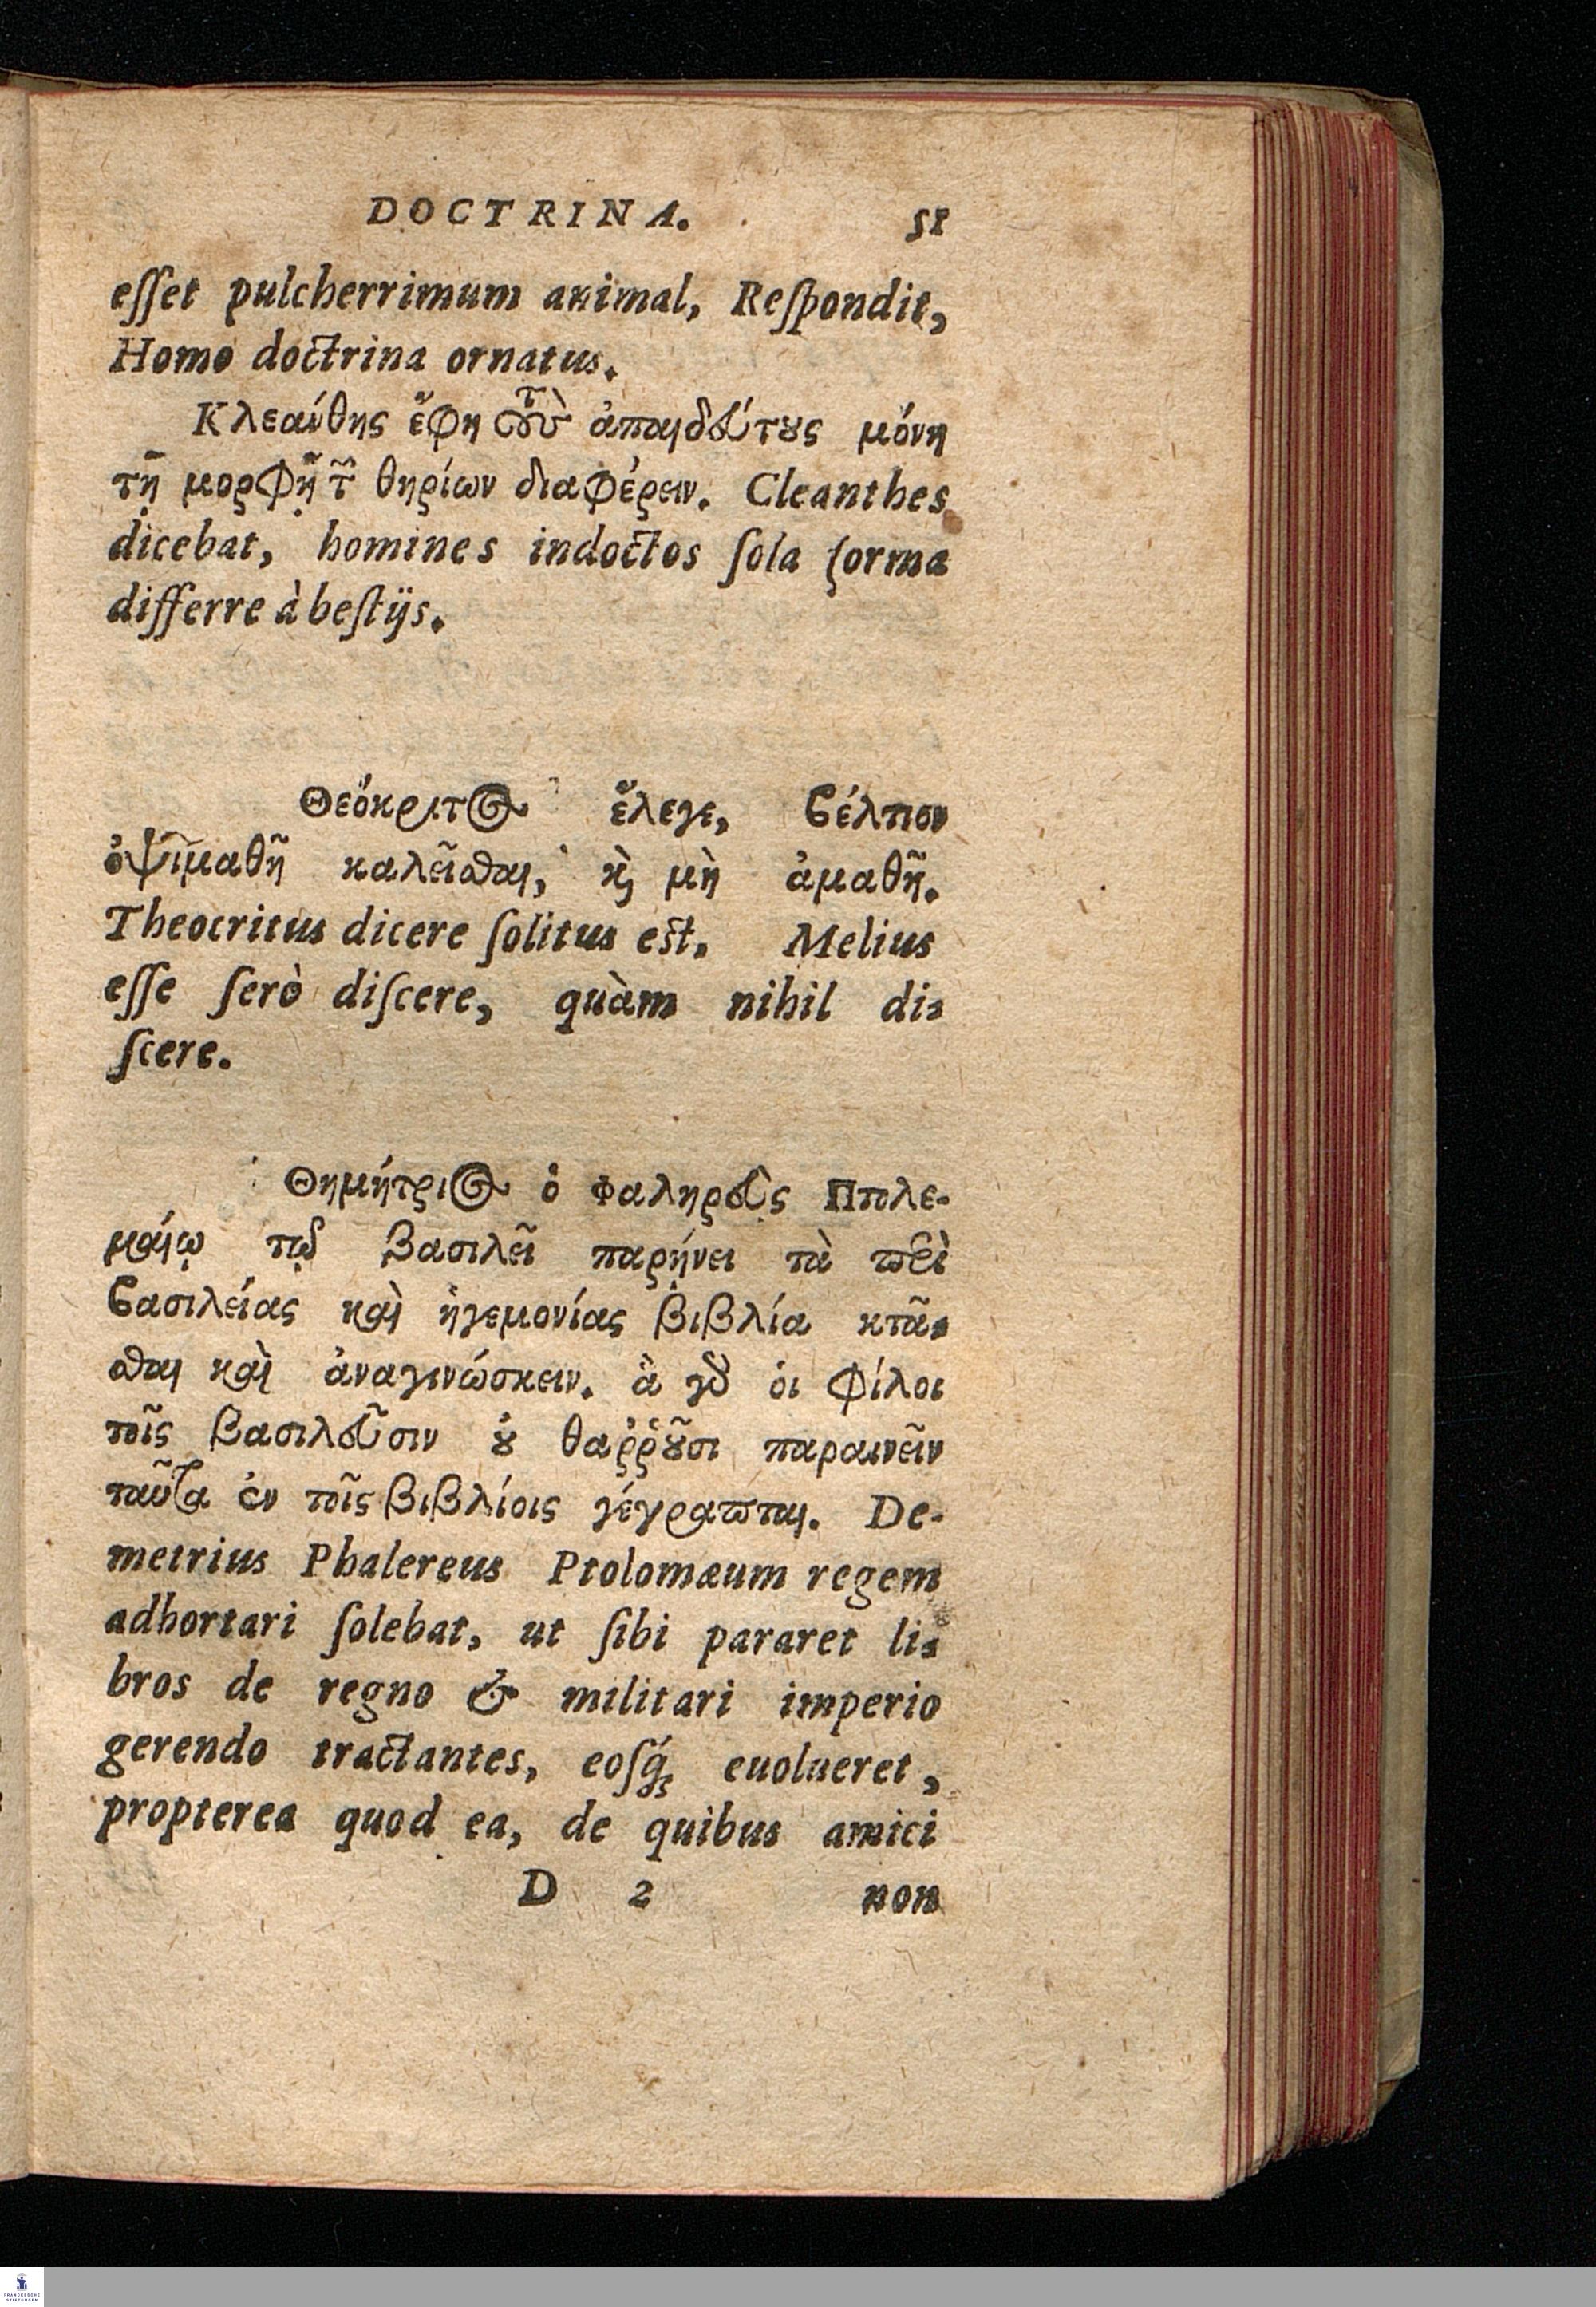 DOCTRINA. 51
esſet pulcherrimum animal, Reſpondit,
Homo doctrina ornatus.
Κλεάνθης ἔφη τοὺς ἀπαιδεύτους μόνη
τῇ μορφῇ τῶν θηρίων διαφέρειν. Cleanthes
dicebat, homines indoctos ſola forma
differre à beſtijs.
Θεόκριτος ἔλεγε, βέλτιον
ὀψιμαθῆ καλεῖσθαι, ἢ μὴ ἀμαθῆ.
Theocritus dicere ſolitus eſt. Melius
eſſe ſerò diſcere, quàm nihil di-
ſcere.
Θημήτριος ὁ Φαληρεὺς Πτολε-
μαίῳ τῷ βασιλεῖ παρῄνει τὰ περὶ
βασιλείας καὶ ἡγεμονίας βιβλία κτᾶ-
σθαι καὶ ἀναγινώσκειν. ἃ γὸ οἱ φίλοι
τοῖς βασιλεῦσιν οὐ θαῤῥοῦσι παραινεῖν
ταῦτα ἐν τοῖς βιβλίοις γέγραπται. De-
metrius Phalereus Ptolomæum regem
adhortari ſolebat, ut ſibi pararet li-
bros de regno & militari imperio
gerendo tractantes, eoſq́; euolueret,
propterea quod ea, de quibus amici
D 2 non
FRANCKESCHE
STIFTUNGEN